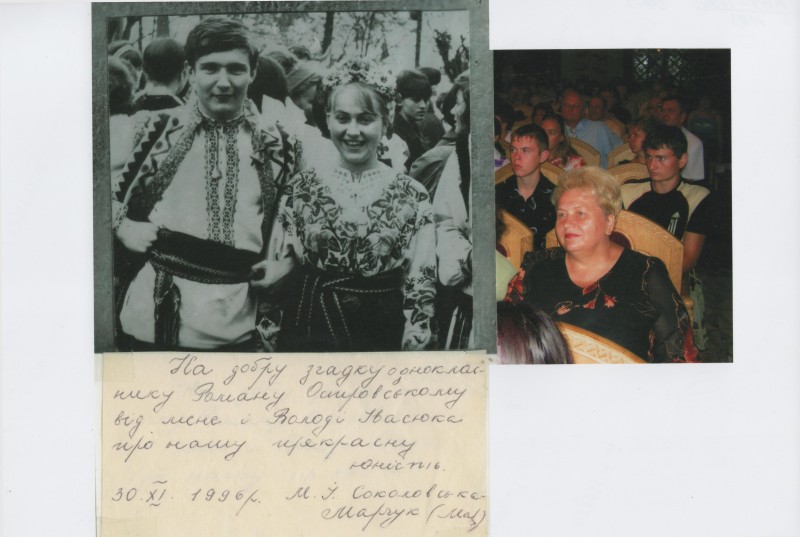 На добру згадку однокласнику Роману Островському
від мене і Володі Івасюка
про нашу прекрасну
юність.
30.XI. 1996р. М. І. Соколовська-
Марчук